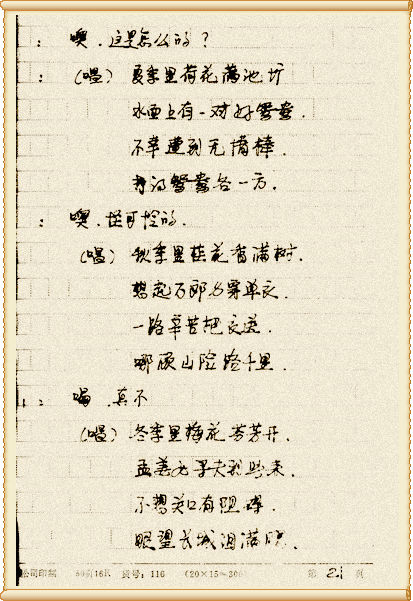 ：噢．这是怎么的？
：（唱）夏季里荷花满池
水面上有一对好鸳鸯．
不幸遭到无情棒．
打得鸳鸯各一方．
：噢．怪可怜的．
（唱）秋季里桂花香满树．
想起万郎 穿单衣．
一路辛苦把衣送．
哪顾山险路千里．
： ．真不
（唱）冬季里梅花芬芳开．
孟姜女寻夫到此来．
不想关口有阻碍．
眼望长城泪满腮．
公司印制 16K 货号：116 （20×15=300） 第 21 页